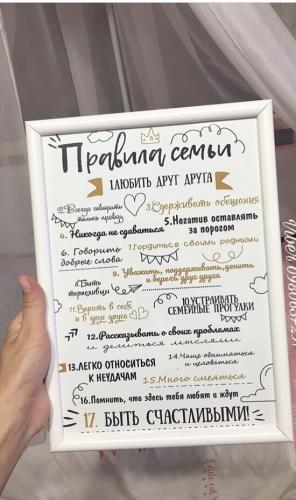 Правила семьи
1.ЛЮБИТЬ ДРУГ ДРУГА
2.Всегда говорить
только правду
3.Сдерживать обещания
4. Никогда не сдаваться
5.Негатив оставлять
за порогом
6. Говорить
добрые слова
7.Гордиться своими родными
8.Быть
терпеливым
9. Уважать, поддерживать, ценить
и беречь друг друга
10.УСТРАИВАТЬ
СЕМЕЙНЫЕ ПРОГУЛКИ
11.Верить в себя
и в друг друга
12.Рассказывать о своих проблемах
и делиться мыслями
13.ЛЕГКО ОТНОСИТЬСЯ
К НЕУДАЧАМ
14.Чаще обниматься
и целоваться
15.Много смеяться
16.Помнить, что здесь тебя любят и ждут
17. БЫТЬ СЧАСТЛИВЫМИ!